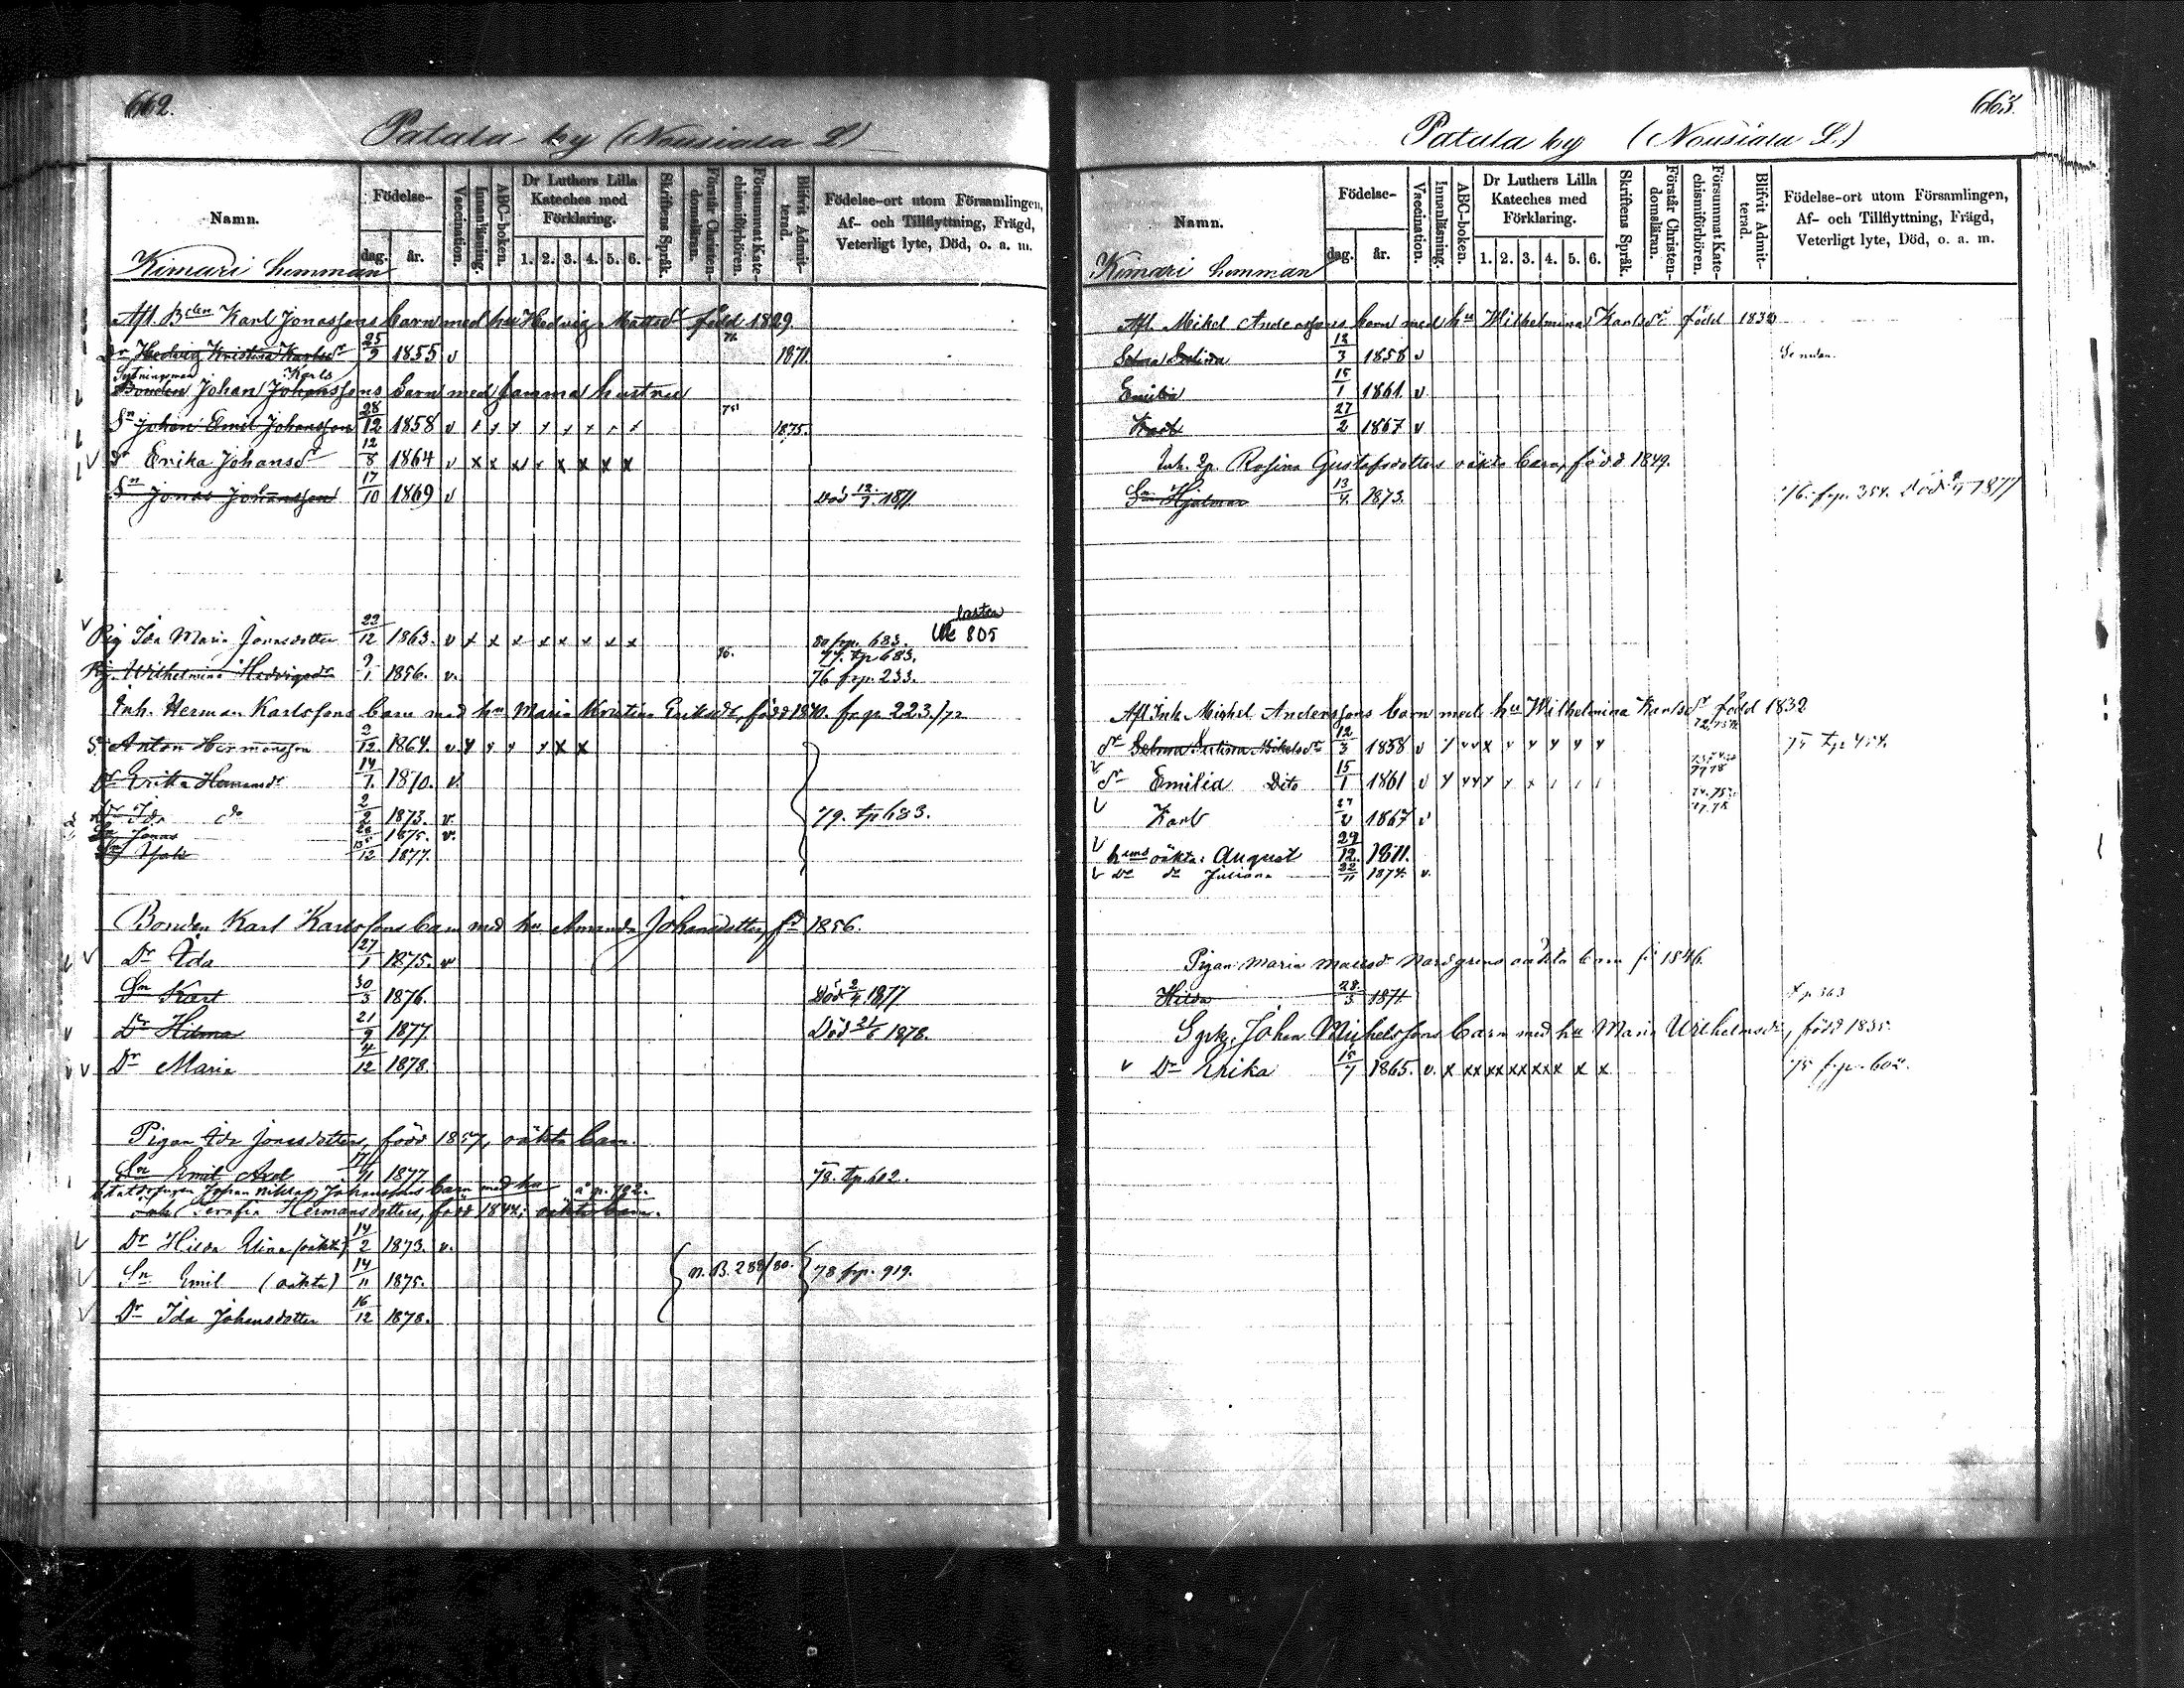 662.
Patala by (Nousiala L)
Namn.
Födelse-
dag.
år.
Vaccination.
Innanläsning.
ABC-boken.
Dr Luthers Lilla Kateches med Förklaring.
1. 2. 3. 4. 5. 6.
Skriftens Språk.
Förstår Christendomsläran.
Försummat Katechismiförhören.
Blifvit Admitterad.
Födelse-ort utom Församlingen, Af- och Tillflyttning, Frägd, Veterligt lyte, Död, o. a. m.
Kimari hemman
Afl. Bden Karl Jonassons barn med hu Hedvig Mattsdr född 1829
Dr Hedvig Kristina Karlsdr 25/9 1855 v 1871.
Sytningsman Karls
Bonden Johan Johanssons barn med samma hustru
Sn Johan Emil Johansson 28/12 1858 v x x x x x x x x 75 1875.
v Dr Erika Johansdr 12/8 1864 v x x x x x x x x
Sn Jonas Johansson 17/10 1869 v Död 12/7 1871.
v Pig Ida Maria Jonasdotter 22/12 1863. v x x x x x x x x 80 frp. 683. 805
77. tp 683.
Pig. Wilhelmina Hedvigsdr 9/1 1856. v. 76. 76 frp. 233.
Inh. Herman Karlssons barn med hu Maria Kristina Eriksdr, född 1840. frp. 223./72
Sn Anton Hermansson 2/12. 1864. v. x x x x x x
Dr Erika Hermansdr 14/7. 1870. v.
Dr Ida do 2/2 1873. v. 79. tp 683.
Sn Jonas 1875. v.
12 1877.
Bonden Karl Karlssons barn med hu Amanda Johansdotter, fd 1856.
v Dr Ida 27/1 1875. v
Sn Karl 30/3 1876. Död 2/4 1877
Dr Hilma 21/9 1877. Död 21/6 1878.
v Dr Maria 4/12 1878.
Pigan Ida Jonasdotters, född 1857, oäkta barn.
Sn Emil Axel 17/4 1877 78. tp. 602.
Johan Niklas Johanssons barn med hu å p. 792.
Serafia Hermansdotters, född 1847, oäkta barn.
v Dr Hilda Elina (oäkta) 14/2 1873. v.
v Sn Emil (oäkta) 14/11 1875. n. B. 288/80. 78 frp. 919.
v Dr Ida Johansdotter 16/12 1878.
663.
Patala by (Nousiala L.)
Namn.
Födelse-
dag.
år.
Vaccination.
Innanläsning.
ABC-boken.
Dr Luthers Lilla Kateches med Förklaring.
1. 2. 3. 4. 5. 6.
Skriftens Språk.
Förstår Christendomsläran.
Försummat Katechismiförhören.
Blifvit Admitterad.
Födelse-ort utom Församlingen, Af- och Tillflyttning, Frägd, Veterligt lyte, Död, o. a. m.
Kimari hemman
Afl. Mikel Anderssons barn med hu Wilhelmina Karlsdr född 1832
Selma Justina 12/3 1858 v Se nedan.
Emilia 15/1 1861. v
Karl 27/2 1867 v
Inh. Dr. Rosina Gustafsdotters oäkta barn, född 1849.
Sn Hjalmar 13/4. 1873. 76. frp. 354. Död 1877
Afl Inh. Mickel Anderssons barn med hu Wilhelmina Karlsdr född 1832
Dr Selma Justina Mikelsdr 12/3 1858 v 75 tp 454.
v Dr Emilia Dito 15/1 1861 v
v Karl 27/2 1867 v
v hens oäkta: August 29/12. 1871.
v Do do Juliana 22/11 1874. v.
Pigan Maria Mattsdr Nordgrens oäkta barn fd 1846.
Hilda 28./3 1871 tp 363
Johan Mickelssons barn med hu Maria Wilhelmsdr, född 1835.
v Dr Erika 15/7 1865. v. x xx xx xx xx x x 75 frp. 602.